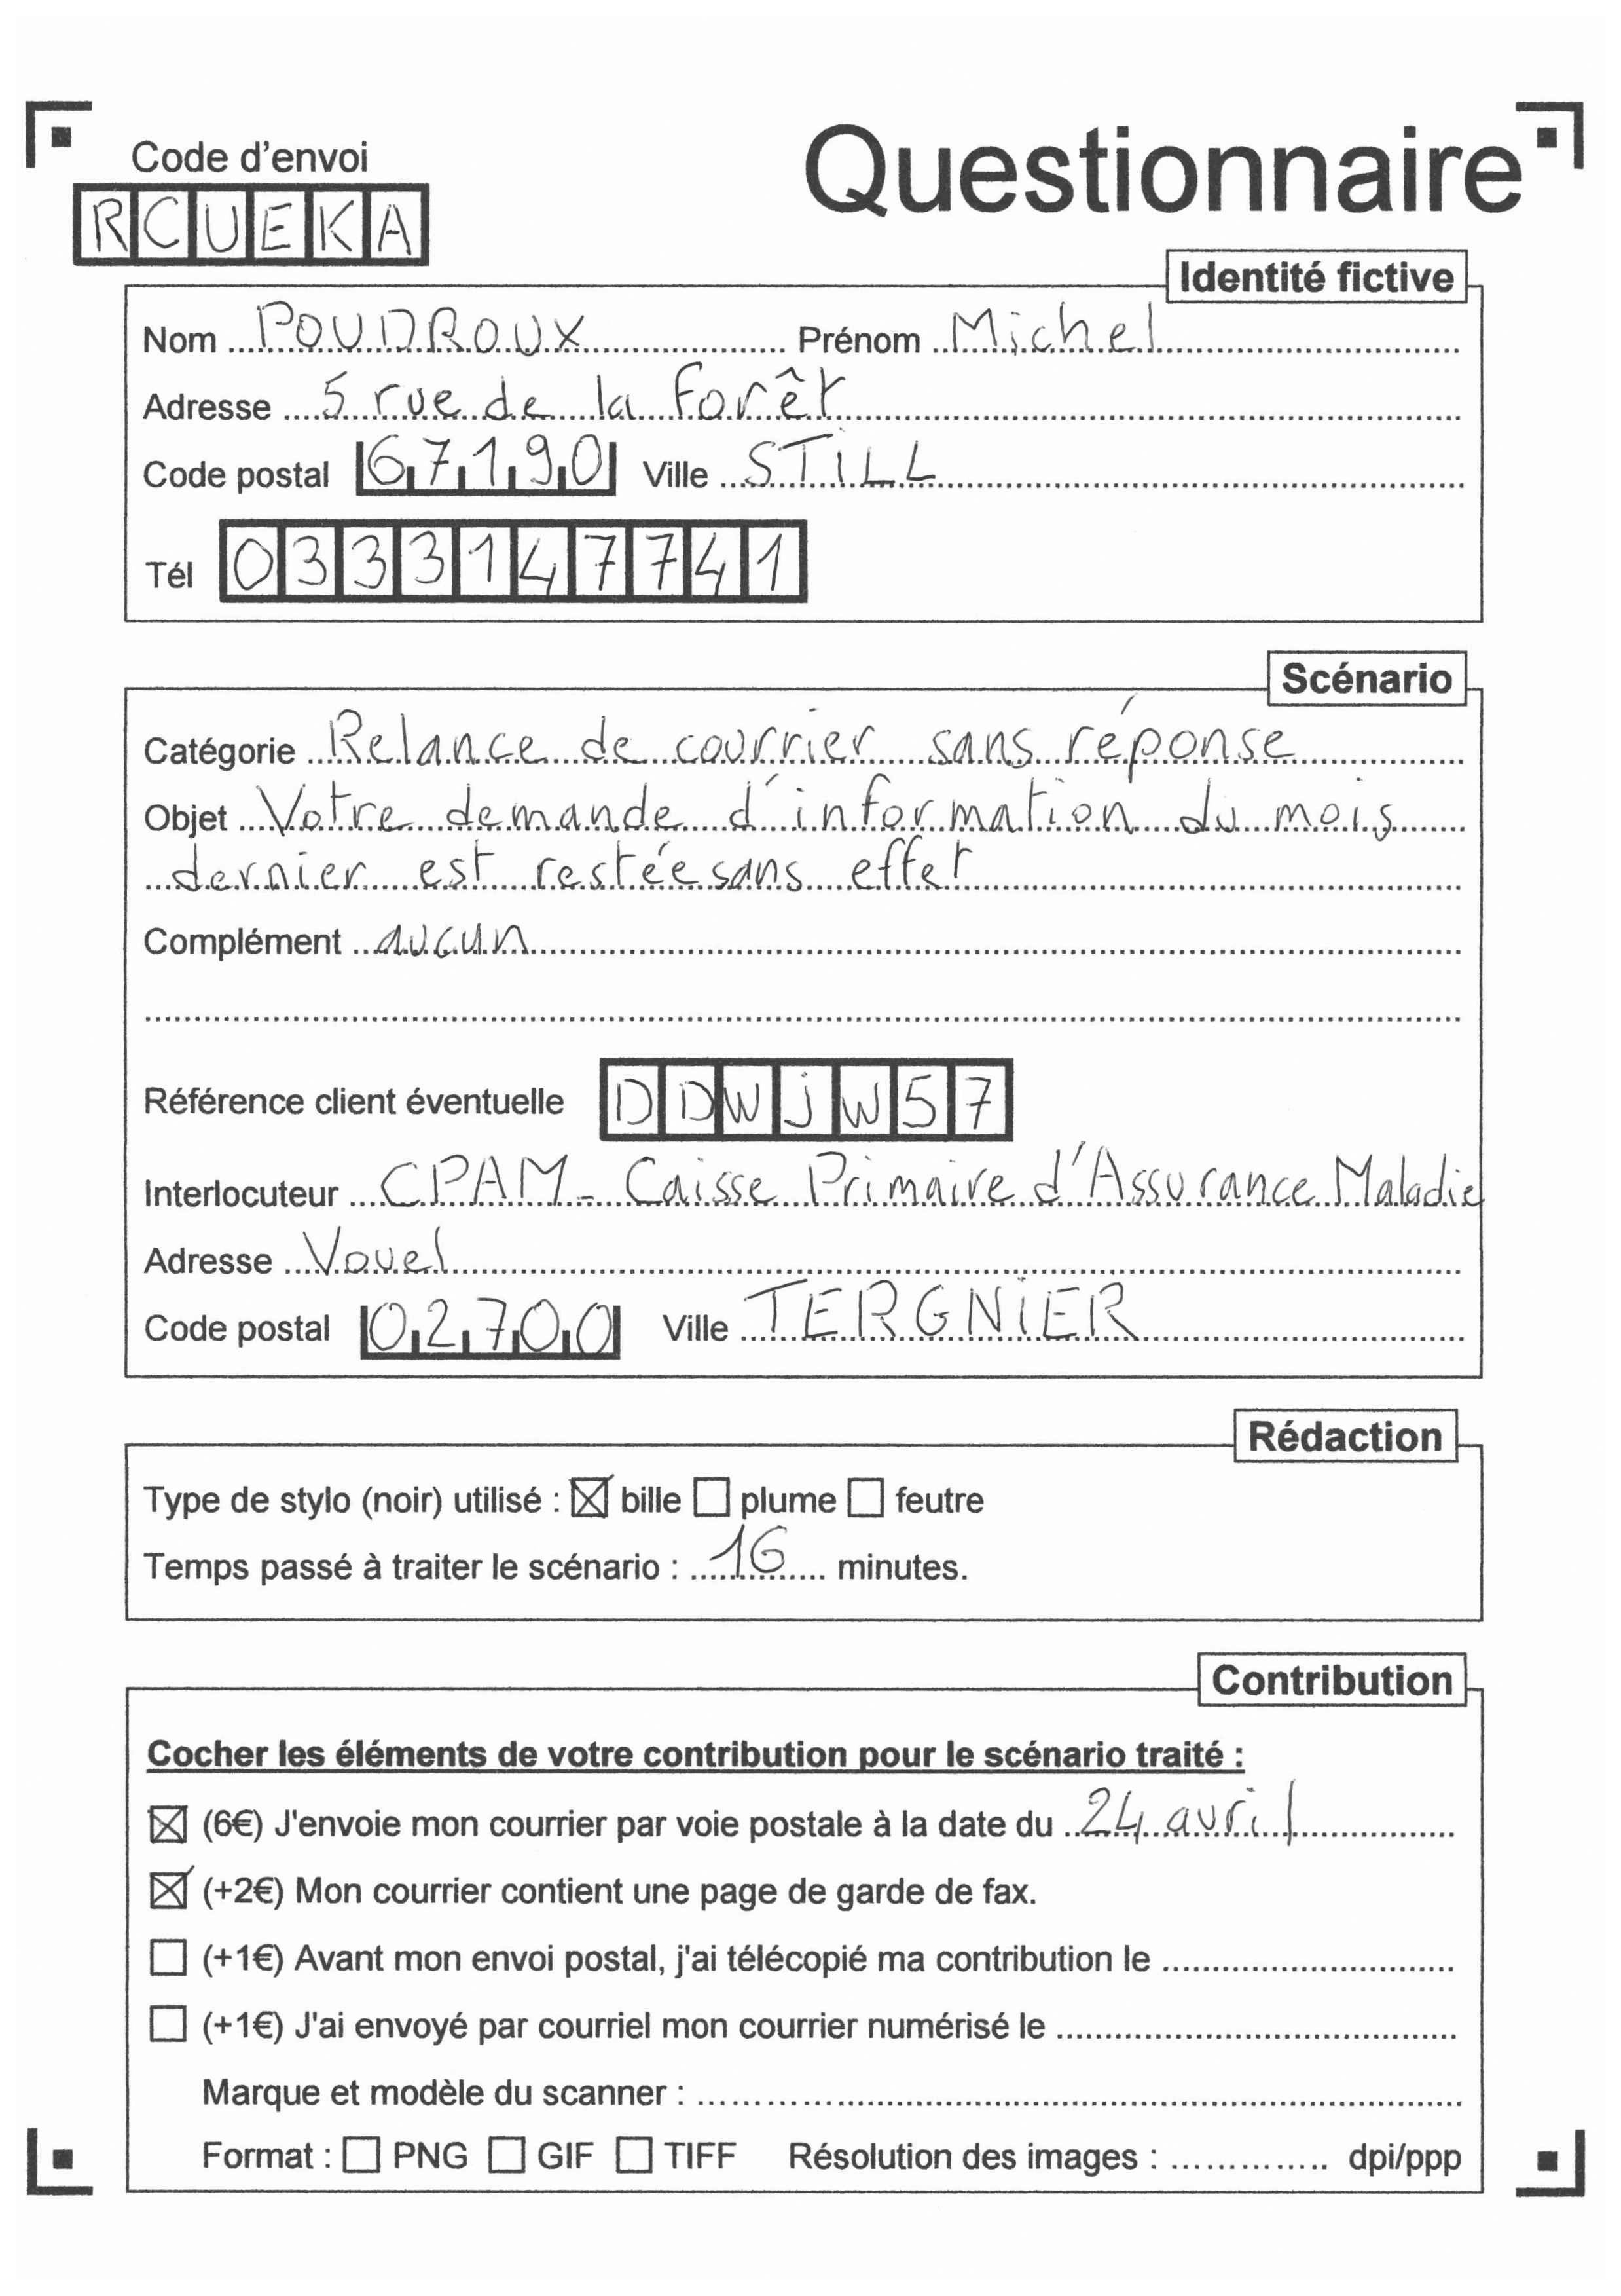 Code d'envoi
Questionnaire
RCUEKA
Identité fictive
Nom POUDROUX Prénom Michel
Adresse 5 rue de la Forêt
Code postal 67190 Ville STiLL
Tél 0333147741
Scénario
Catégorie Relance de courrier sans réponse
Objet Votre demande d'information du mois
dernier est restée sans effet
Complément aucun
Référence client éventuelle DDWJW57
Interlocuteur CPAM - Caisse Primaire d'Assurance Maladie
Adresse Vouel
Code postal 02700 Ville TERGNiER
Rédaction
Type de stylo (noir) utilisé : ☒ bille ☐ plume ☐ feutre
Temps passé à traiter le scénario : 16 minutes.
Contribution
Cocher les éléments de votre contribution pour le scénario traité :
☒ (6€) J'envoie mon courrier par voie postale à la date du 24 avril
☒ (+2€) Mon courrier contient une page de garde de fax.
☐ (+1€) Avant mon envoi postal, j'ai télécopié ma contribution le
☐ (+1€) J'ai envoyé par courriel mon courrier numérisé le
Marque et modèle du scanner :
Format : ☐ PNG ☐ GIF ☐ TIFF Résolution des images : dpi/ppp